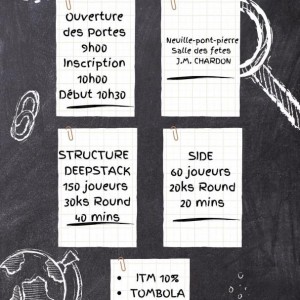 Ouverture
des Portes
9h00
Inscription
10h00
Début 10h30
Neuille-pont-pierre
Salle des fetes
J.M. CHARDON
STRUCTURE
DEEPSTACK
150 joueurs
30ks Round
40 mins
SIDE
60 joueurs
20ks Round
20 mins
• ITM 10%
• TOMBOLA